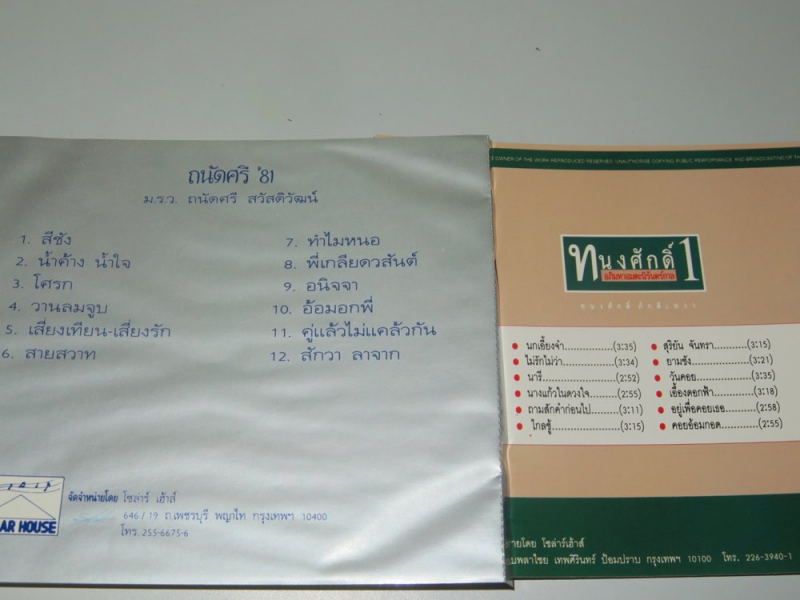 ถนัดศรี '81
ม.ร.ว. ถนัดศรี สวัสดิวัฒน์
1. สีชัง
2. น้ำค้าง น้ำใจ
3. โศรก
4. วานลมจูบ
5. เสี่ยงเทียน-เสี่ยงรัก
6. สายสวาท
7. ทำไมหนอ
8. พี่เกลียดวสันต์
9. อนิจจา
10. อ้อมอกพี่
11. คู่แล้วไม่แคล้วกัน
12. สักวา ลาจาก
AR HOUSE
จัดจำหน่ายโดย โซล่าร์ เฮ้าส์
646/19 ถ.เพชรบุรี พญาไท กรุงเทพฯ 10400
โทร. 255-6675-6
OWNER OF THE WORK REPRODUCED RESERVED. UNAUTHORISE COPYING PUBLIC PERFORMANCE AND BROADCASTING OF
ทนงศักดิ์ 1
นกเอี้ยงจ๋า (3:35)
ไม่รักไม่ว่า (3:34)
นารี (2:52)
นางแก้วในดวงใจ (2:55)
ถามสักคำก่อนไป (3:11)
ไกลชู้ (3:15)
สุริยัน จันทรา (3:15)
ยามชัง (3:21)
วันคอย (3:35)
เอื้องดอกฟ้า (3:18)
อยู่เพื่อคอยเธอ (2:58)
คอยอ้อมกอด (2:55)
ายโดย โซล่าร์เฮ้าส์
บพลาไชย เทพศิรินทร์ ป้อมปราบ กรุงเทพฯ 10100 โทร. 226-3940-1